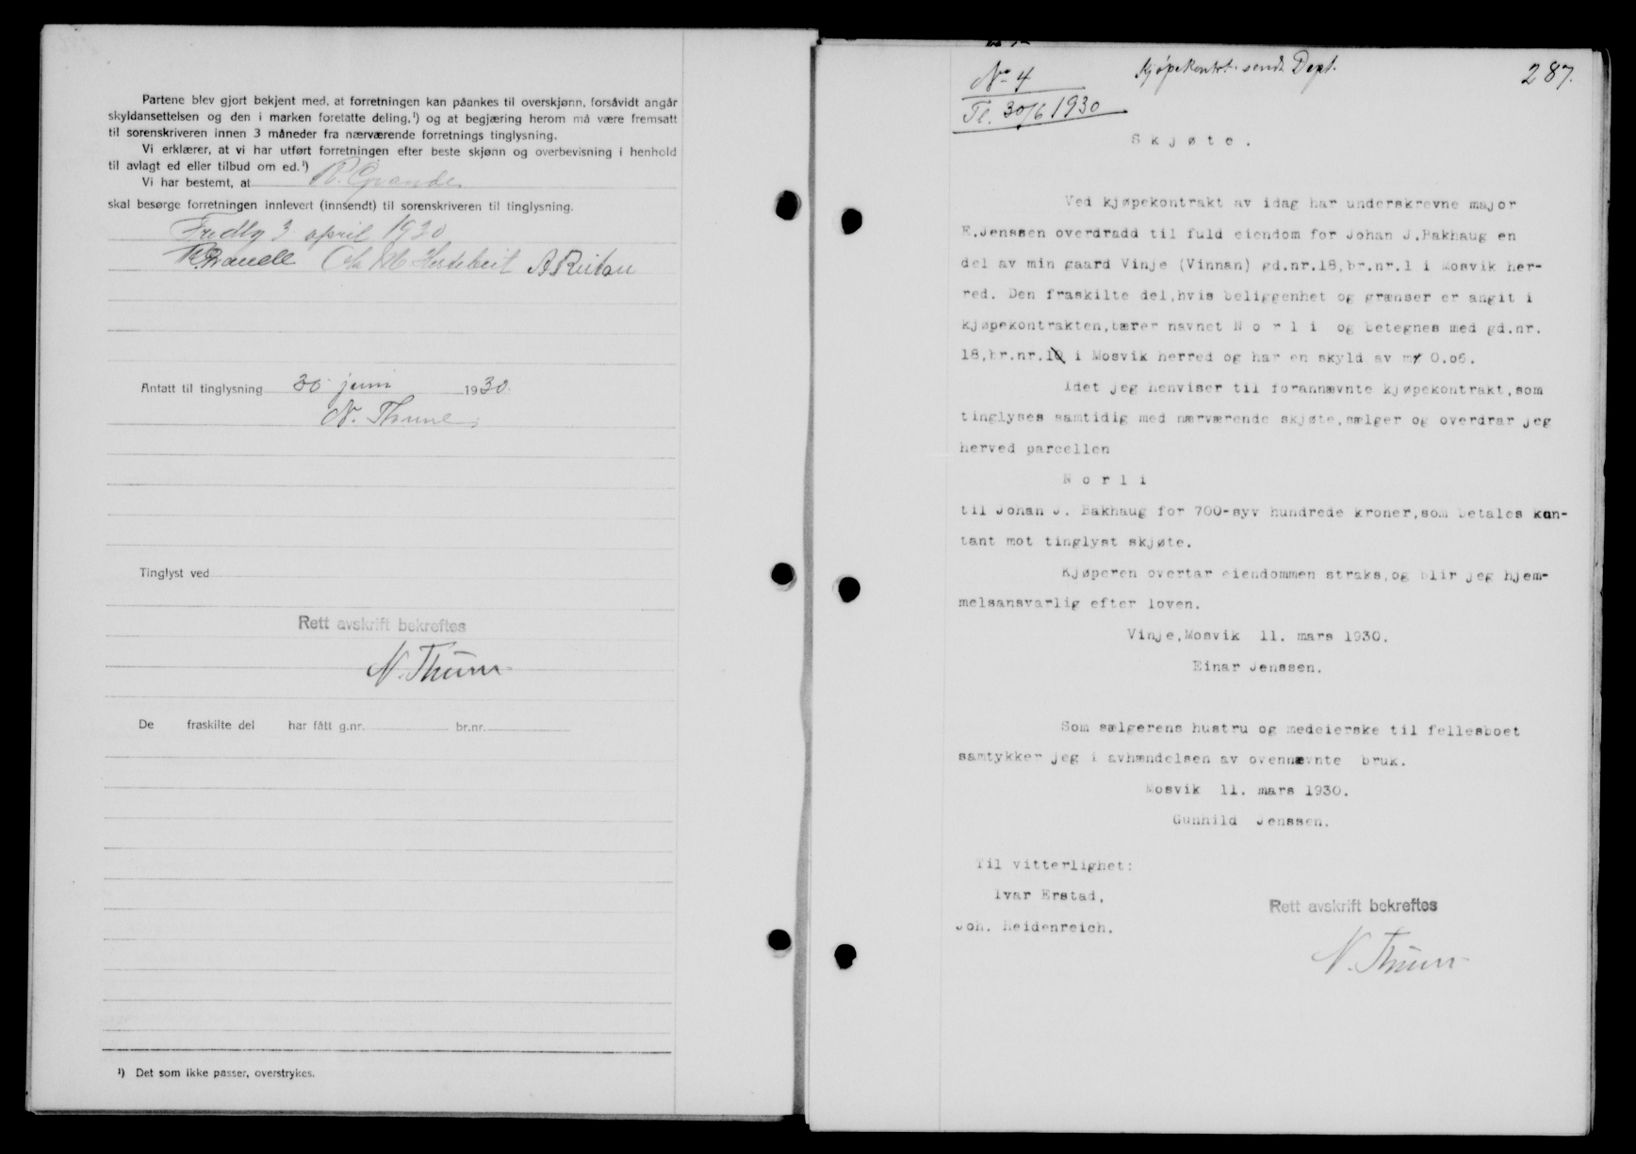 Partene blev gjort bekjent med, at forretningen kan påankes til overskjønn, forsåvidt angår
skyldansettelsen og den i marken foretatte deling,¹) og at begjæring herom må være fremsatt
til sorenskriveren innen 3 måneder fra nærværende forretnings tinglysning.
Vi erklærer, at vi har utført forretningen efter beste skjønn og overbevisning i henhold
til avlagt ed eller tilbud om ed.¹)
Vi har bestemt, at R. Grande
skal besørge forretningen innlevert (innsendt) til sorenskriveren til tinglysning.
Fredly 3 april 1930
Antatt til tinglysning 30 juni 1930.
N. Thune
Tinglyst ved
Rett avskrift bekreftes
N. Thune
De fraskilte del har fått g.nr. br.nr.
¹) Det som ikke passer, overstrykes.
No 4 Kjøpekontrt. sendt Dept. 287.
Tl. 30/6 1930
Skjøte.
Ved kjøpekontrakt av idag har underskrevne major
E.Jenssen overdradd til fuld eiendom for Johan J.Bakhaug en
del av min gaard Vinje (Vinnan) gd.nr.18,br.nr.1 i Mosvik her-
red. Den fraskilte del,hvis beliggenhet og grænser er angit i
kjøpekontrakten,bærer navnet N o r l i og betegnes med gd.nr.
18,br.nr.10 i Mosvik herred og har en skyld av mk 0.06.
Idet jeg henviser til forannævnte kjøpekontrakt,som
tinglyses samtidig med nærværende skjøte,sælger og overdrar jeg
herved parcellen
N o r l i
til Johan J. Bakhaug for 700-syv hundrede kroner,som betales kon-
tant mot tinglyst skjøte.
Kjøperen overtar eiendommen straks,og blir jeg hjem-
melsansvarlig efter loven.
Vinje,Mosvik 11. mars 1930.
Einar Jenssen.
Som sælgerens hustru og medeierske til fellesboet
samtykker jeg i avhændelsen av ovennævnte bruk.
Mosvik 11. mars 1930.
Gunhild Jenssen.
Til vitterlighet:
Ivar Erstad,
Joh. Heidenreich.
Rett avskrift bekreftes
N. Thune